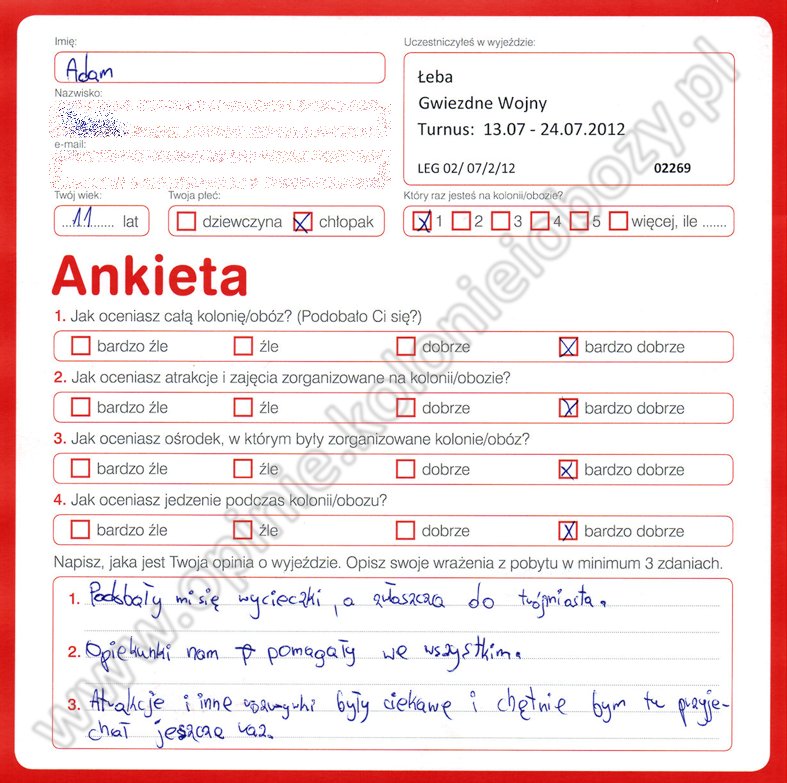 Imię:
Adam
Nazwisko:
e-mail:
Twój wiek:
11 lat
Twoja płeć:
dziewczyna chłopak
Uczestniczyłeś w wyjeździe:
Łeba
Gwiezdne Wojny
Turnus: 13.07 - 24.07.2012
LEG 02/ 07/2/12 02269
Który raz jesteś na kolonii/obozie?
1 2 3 4 5 więcej, ile .......
Ankieta
1. Jak oceniasz całą kolonię/obóz? (Podobało Ci się?)
bardzo źle źle dobrze bardzo dobrze
2. Jak oceniasz atrakcje i zajęcia zorganizowane na kolonii/obozie?
bardzo źle źle dobrze bardzo dobrze
3. Jak oceniasz ośrodek, w którym były zorganizowane kolonie/obóz?
bardzo źle źle dobrze bardzo dobrze
4. Jak oceniasz jedzenie podczas kolonii/obozu?
bardzo źle źle dobrze bardzo dobrze
Napisz, jaka jest Twoja opinia o wyjeździe. Opisz swoje wrażenia z pobytu w minimum 3 zdaniach.
1. Podobały mi się wycieczki, a zwłaszcza do trójmiasta.
2. Opiekunki nam pomagały we wszystkim.
3. Atrakcje i inne były ciekawe i chętnie bym tu przyje-
chał jeszcze raz.
www.opinie.kolonieiobozy.pl